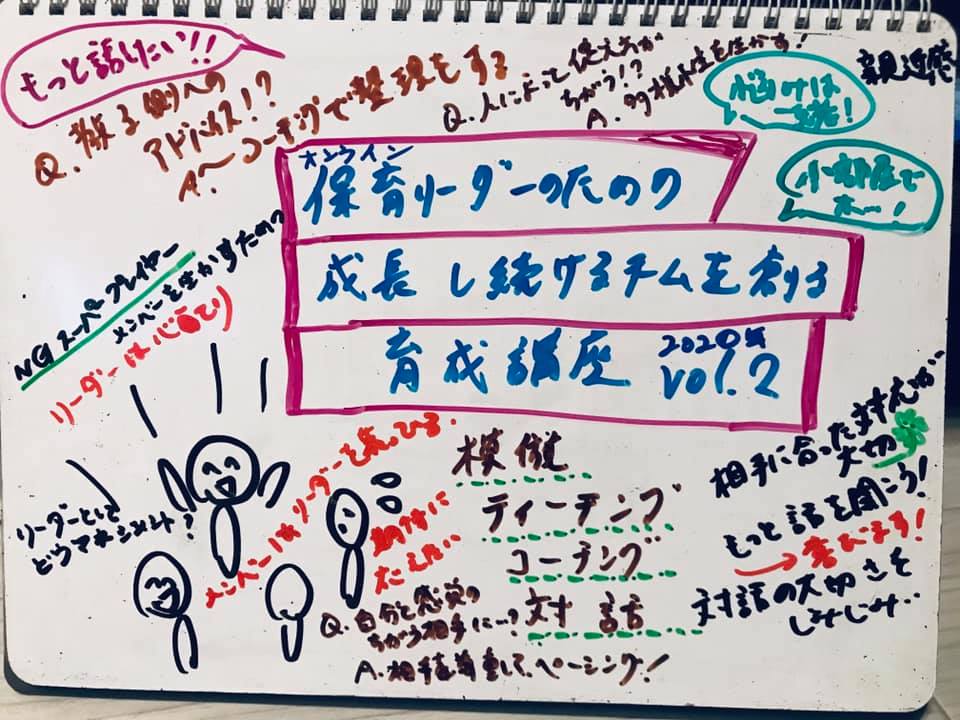 もっと話したい!!
Q. 撮る側への
アドバイス!?
A. 〜コーチングで整理をする
Q. 人によって使え方が
ちがう!?
A. 多様性を生かす!
悩みは
一緒!
親近感
小部屋で
ホッ…!
オンライン
保育リーダーのための
成長し続けるチームを創る
育成講座 2020年
vol.2
NGスーパープレイヤー
メンバーを生かすための
リーダーは心言てり
リーダーとして
どうマネジメント?
メンバーはリーダーを気してる.
期待に
こたえたい
模倣
ティーチング
コーチング
対話
Q. 自分と感覚の
ちがう相手に…?
A. 相手を尊重して、ペーシング!
相手に合った対応が
大切
もっと話を聞こう!
→喜びます!
対話の大切さを
しみじみ..